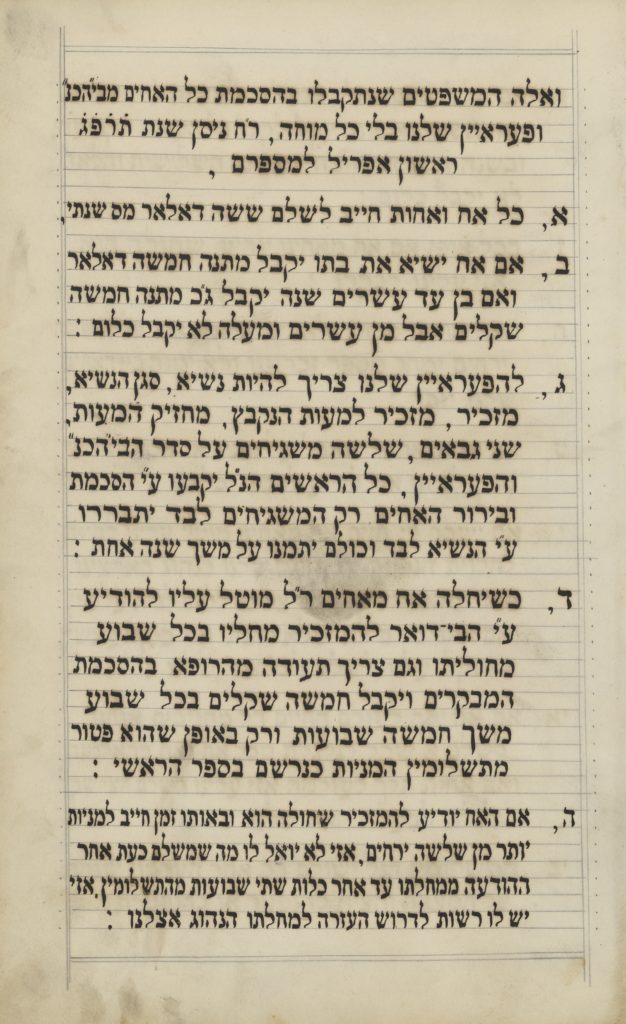 ואלה המשפטים שנתקבלו בהסכמת כל האחים מביהכנ״
ופעראיין שלנו בלי כל מוחה, ר״ח ניסן שנת תרפ״ג
ראשון אפריל למספרם ,
א, כל אח ואחות חייב לשלם ששה דאלאר מס שנתי,
ב, אם אח ישיא את בתו יקבל מתנה חמשה דאלאר
ואם בן עד עשרים שנה יקבל ג״כ מתנה חמשה
שקלים אבל מן עשרים ומעלה לא יקבל כלום :
ג, להפעראיין שלנו צריך להיות נשיא, סגן הנשיא,
מזכיר, מזכיר למעות הנקבץ, מחזיק המעות,
שני גבאים, שלשה משגיחים על סדר הבי״הכנ״
והפעראיין, כל הראשים הנ״ל יקבעו ע״י הסכמת
ובירור האחים רק המשגיחים לבד יתבררו
ע״י הנשיא לבד וכולם יתמנו על משך שנה אחת :
ד, כשיחלה אח מאחים ר״ל מוטל עליו להודיע
ע״י הבי־דואר להמזכיר מחליו בכל שבוע
מחוליתו וגם צריך תעודה מהרופא בהסכמת
המבקרים ויקבל חמשה שקלים בכל שבוע
משך חמשה שבועות ורק באופן שהוא פטור
מתשלומין המניות כנרשם בספר הראשי :
ה, אם האח יודיע להמזכיר שחולה הוא ובאותו זמן חייב למניות
יותר מן שלשה ירחים, אזי לא יואל לו מה שמשלם כעת אחר
ההודעה ממחלתו עד אחר כלות שתי שבועות מהתשלומין, אזי
יש לו רשות לדרוש העזרה למחלתו הנהוג אצלנו :